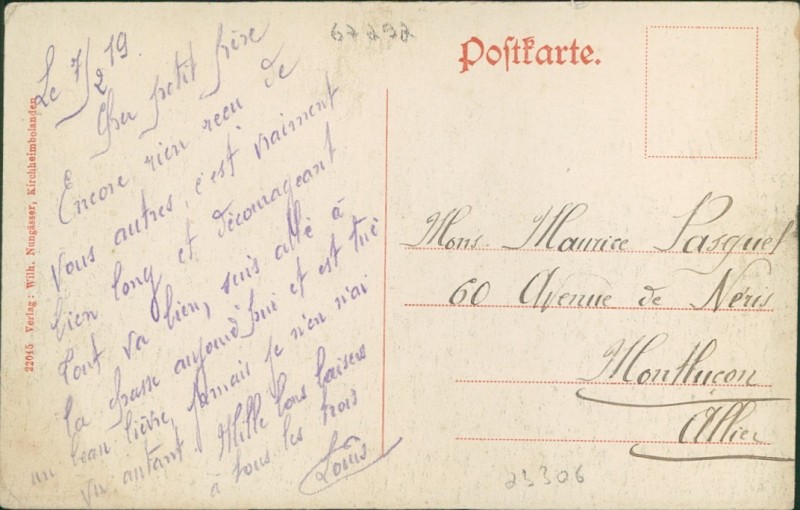 67292
Postkarte.
Le 7/2 19.
Cher petit frère
Encore rien reçu de
vous autres, c'est vraiment
bien long et décourageant
Tout va bien, suis allé à
la chasse aujourd'hui et est tué
un beau lièvre, jamais je n'en n'ai
vu autant. Mille bons baisers
à tous les trois
Louis
22045 Verlag: Wilh. Nungässer, Kirchheimbolanden
Mons. Maurice Pasquet
60 Avenue de Néris
Montluçon
Allier
23306